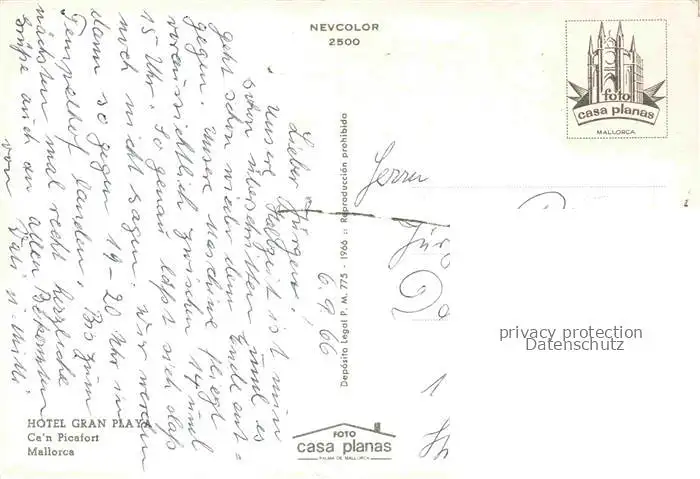 NEVCOLOR
2500
foto
casa planas
MALLORCA
6.9.66
Lieber Jürgen!
Unsere Halbzeit ist nun
schon überschritten und es
geht schon wieder dem Ende ent=
gegen. Unsere Maschine fliegt
voraussichtlich zwischen 14 und
15 Uhr. So genau läßt sich das
noch nicht sagen. Wir werden
dann so gegen 19-20 Uhr in
Tempelhof landen. Bis zum
nächsten mal recht herzliche
Grüße auch an allen Bekannten
von Vati u. Mutti.
Depósito Legal P. M. 775 - 1966 :: Reproducción prohibida
Herrn
Jür
1
privacy protection
Datenschutz
HOTEL GRAN PLAYA
Ca'n Picafort
Mallorca
FOTO
casa planas
PALMA DE MALLORCA